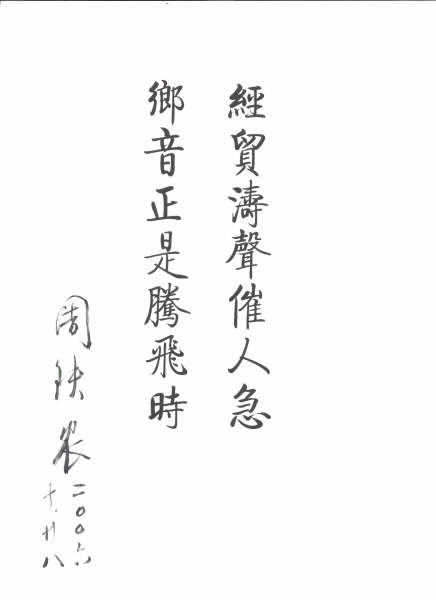 經貿濤聲催人急
鄉音正是騰飛時
周鉄農
二〇〇六
十.廿八